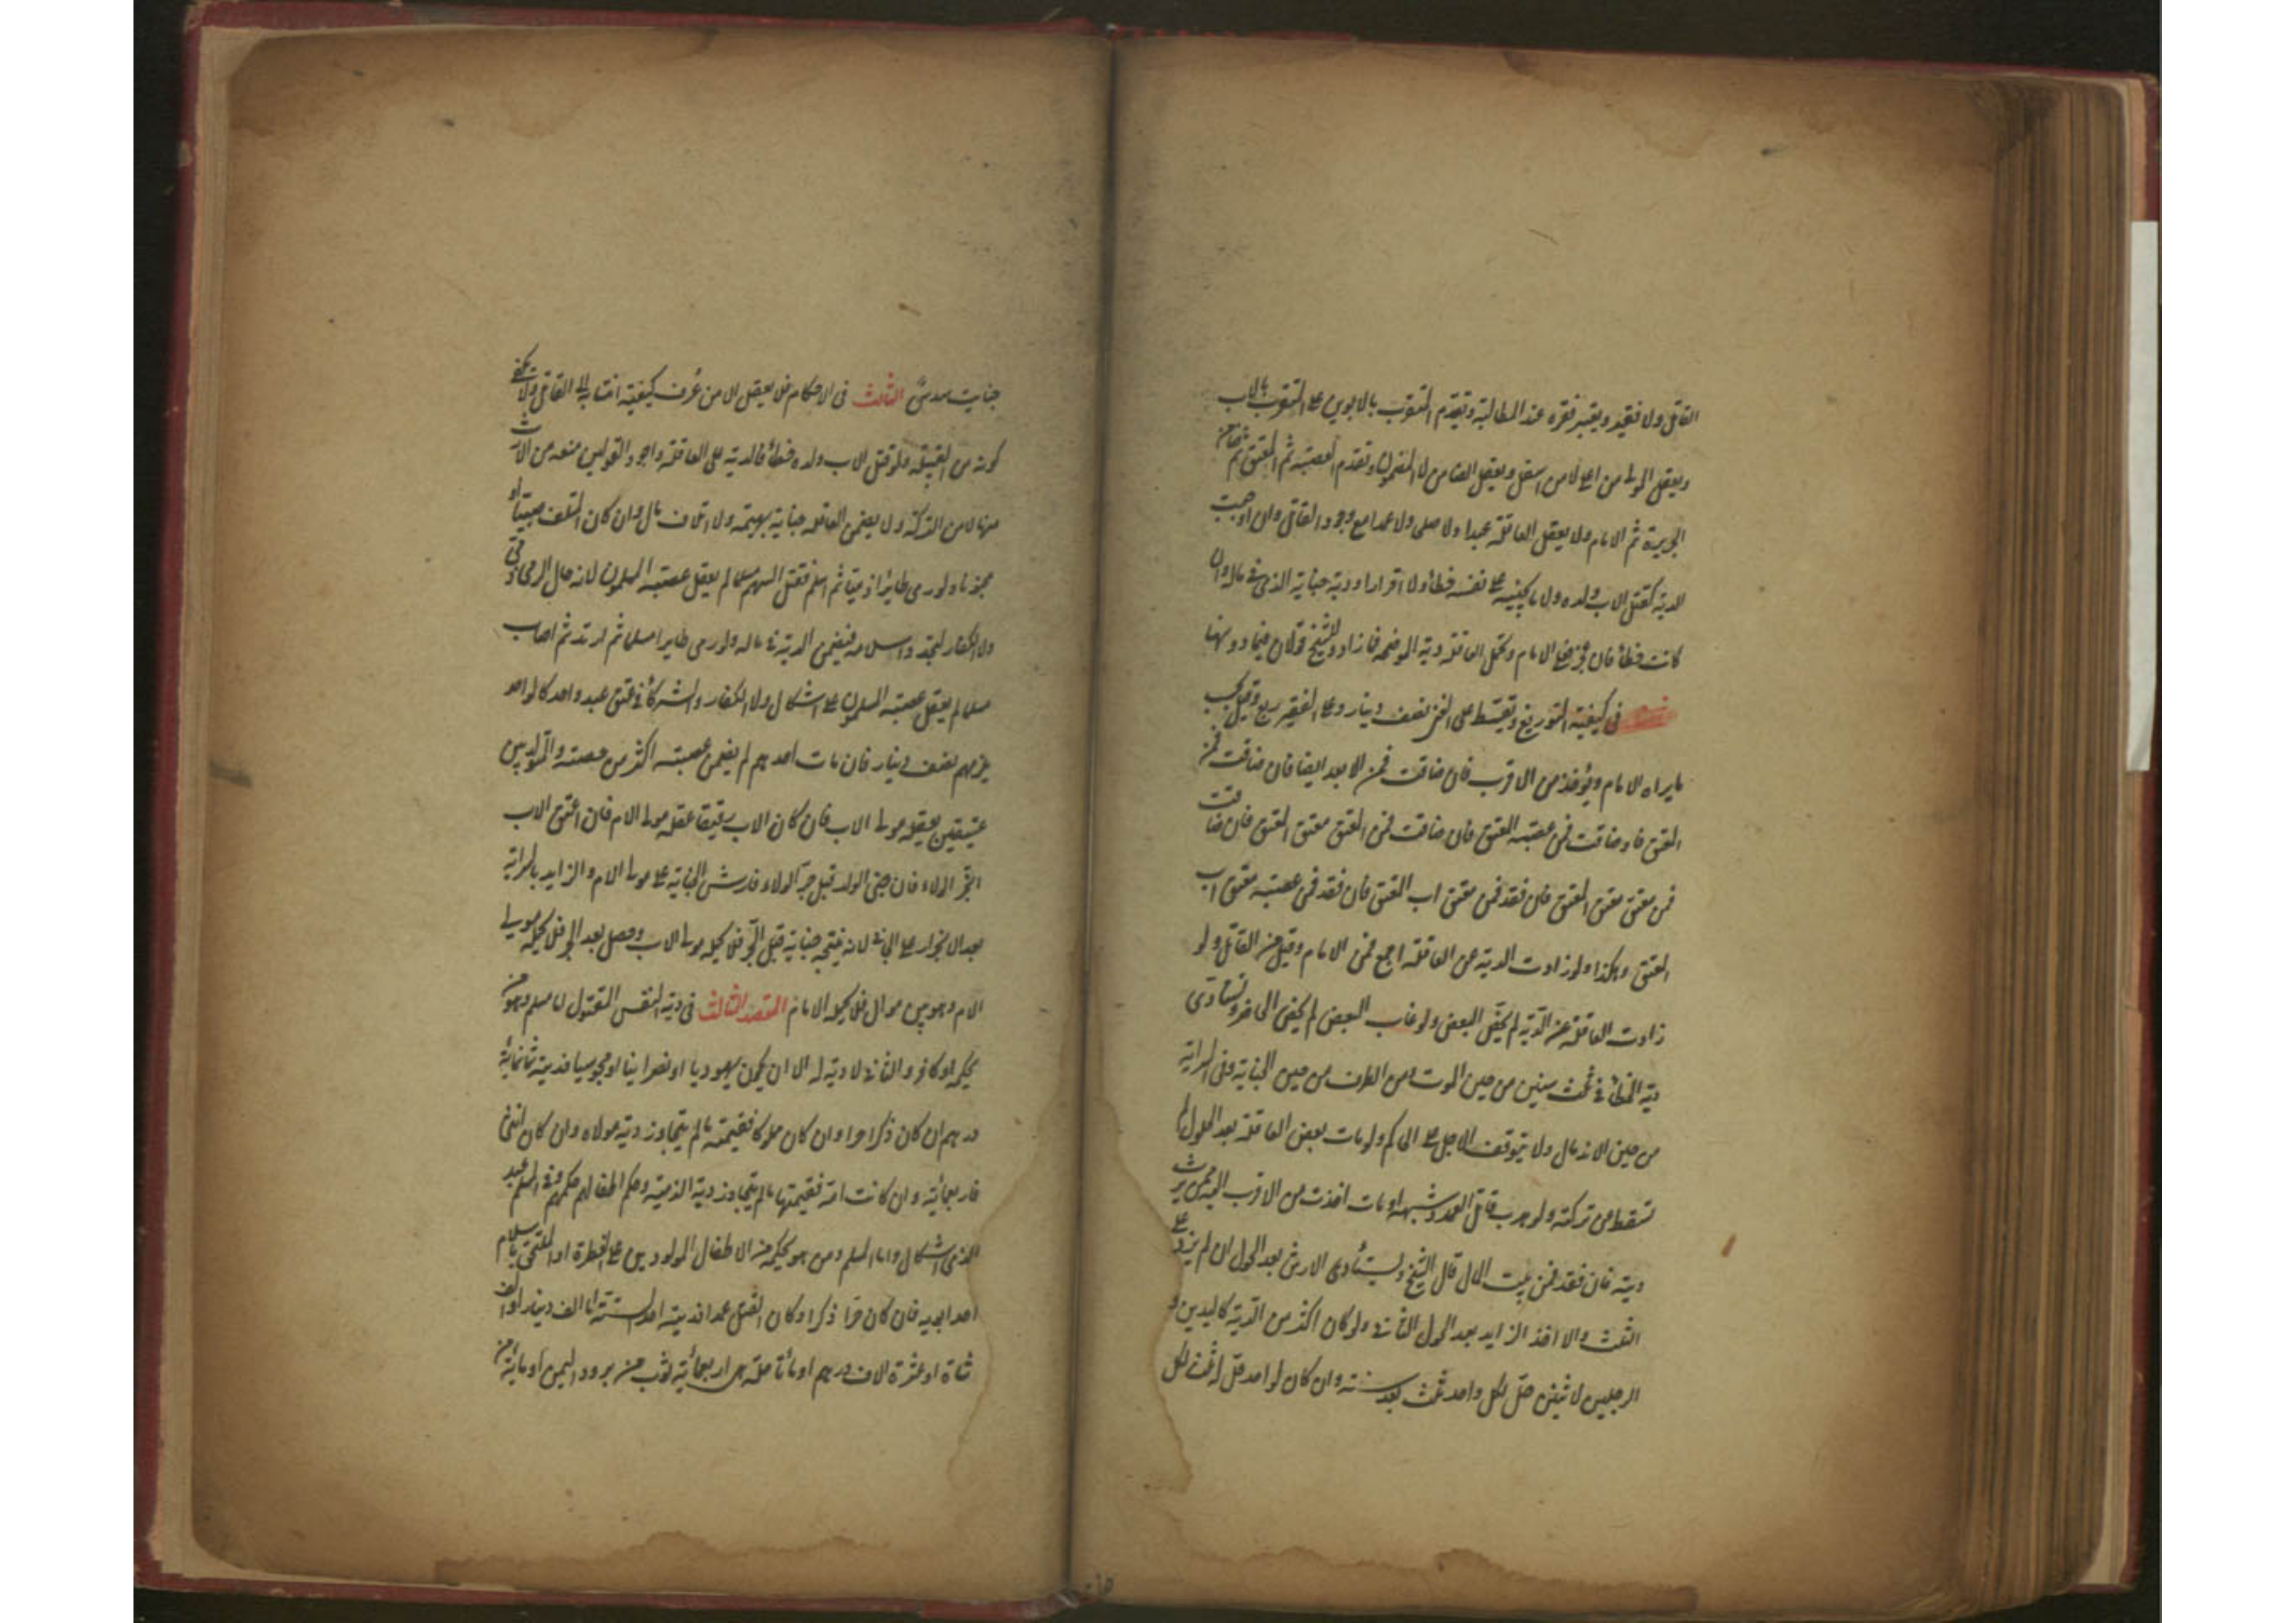 القاتل ولا فقير ويعتبر فقره عند المطالبة وتقدم المتقرب بالابوين على المتقرب بالاب
ويعقل المولى من اعلى لا من اسفل ويعقل الضامن لا المضمون وتقدم العصبة ثم المعتق ثم ضامن
الجريرة ثم الامام ولا يعقل العاقلة عبدا ولا صلحا ولا عمدا مع وجود القاتل وان اوجبت
الدية كقتل الاب ولده ولا ما يجنيه على نفسه خطأ ولا اقرارا ودية جناية الذمي في ماله وان
كانت خطأ فان عجز فعلى الامام وتحمل العاقلة دية الموضحة فما زاد وللشيخ قولان فيما دونها
في كيفية التوزيع وتقسط على الغني نصف دينار وعلى الفقير ربع وقيل بحسب
ما يراه الامام ويؤخذ من الاقرب فان ضاقت فمن الابعد ايضا فان ضاقت فمن
المعتق فان ضاقت فمن عصبة المعتق فان ضاقت فمن المعتق معتق المعتق فان ضاقت
فمن معتق معتق المعتق فان فقد فمن معتق اب المعتق فان فقد فمن عصبة معتق اب
المعتق وهكذا ولو زادت الدية عن العاقلة اجمع فمن الامام وقيل من القاتل ولو
زادت العاقلة عن الدية لم يختص البعض ولو غاب البعض لم يختص الحاضر وتستأدى
دية الخطأ في ثلث سنين من حين الموت ومن الطرف من حين الجناية وفي السراية
من حين الاندمال ولا يتوقف الاجل على الحاكم ولو مات بعض العاقلة بعد الحلول لم
تسقط من تركته ولو هرب قاتل العمد وشبهه او مات اخذت من الاقرب اليه ممن يرث
ديته فان فقد فمن بيت المال قال الشيخ ويستأدى الارش بعد الحول ان لم يزد على
الثلث والا اخذ الزايد بعد الحول الثاني ولو كان اكثر من الدية كاليدين و
الرجلين لاثنين حل لكل واحد ثلث بعد سنة وان كان لواحد حل له ثلث لكل
جناية سدس الثالث في الاحكام فلا يعقل الا من عرف كيفية انتسابه الى القاتل ولا يكفي
كونه من القبيلة ولو قتل الاب ولده خطأ فالدية على العاقلة واجود القولين منعه من الارث
منها لا من التركة ولا يضمن العاقلة جناية بهيمة ولا اتلاف مال وان كان المتلف صبيا او
مجنونا ولو رمى طايرا ذميا ثم اسلم فقتل السهم مسلما لم يعقل عصبته المسلمون لانه حال الرمي ذمي
ولا الكفار لتجدد اسلامه فيضمن الدية في ماله ولو رمى طايرا مسلما ثم ارتد ثم اصاب
مسلما لم يعقل عصبته المسلمون على اشكال ولا الكفار والشركاء في عتق عبد واحد كالواحد
يلزمهم نصف دينار فان مات احدهم لم يضمن عصبته اكثر من حصته والمتولد بين
عتيقين يعقله مولى الاب فان كان الاب رقيقا عقله مولى الام فان اعتق الاب
انجر الولاء فان جنى الولد قبل جر الولاء فارش الجناية على مولى الام والزايد بالسراية
بعد الانجرار على الجاني لانه نتيجة جناية قبل الجر فلا يحمله مولى الاب وحصل بعد الجر فلا يحمله مولى
الام وهو بين موال فلا يحمله الامام المقصد الثالث في دية النفس المقتول اما مسلم ومن هو
بحكمه او كافر والثاني لا دية له الا ان يكون يهوديا او نصرانيا او مجوسيا فديته ثمانمائة
درهم ان كان ذكرا حرا وان كان مملوكا فقيمته ما لم يتجاوز دية مولاه وان كان انثى
فاربعمائة وان كانت امة فقيمتها ما لم يتجاوز دية الذمية وحكم اطفالهم حكمهم وفي المسلم عبد
الذمي اشكال واما المسلم ومن هو بحكمه من الاطفال المولودين على الفطرة او الملتحق باسلام
احد ابويه فان كان حرا ذكرا وكان القتل عمدا فديته احد الستة اما الف دينار او الف
شاة او عشرة الاف درهم او مائتا حلة هي اربعمائة ثوب من برود اليمن او مائة من